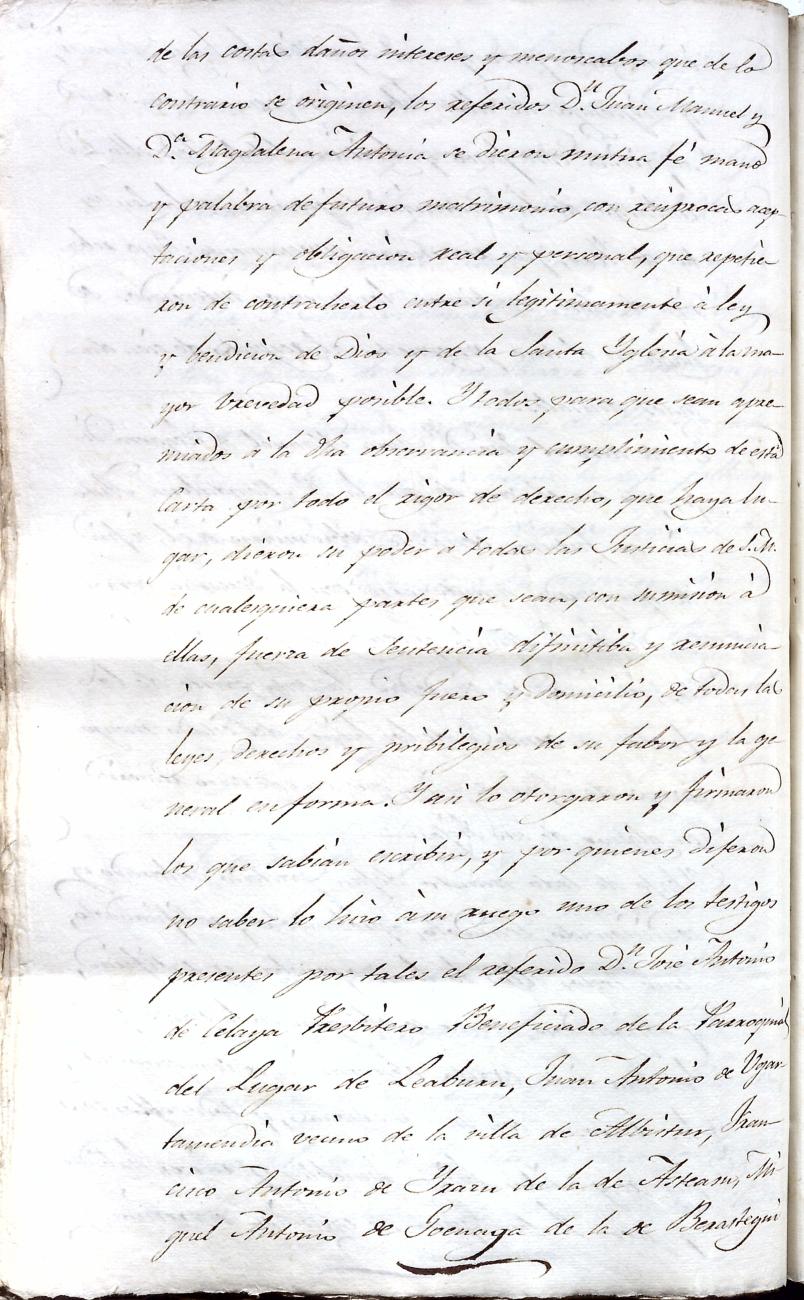 de las costas daños intereses y menoscabos que de lo
contrario se originen, los referidos D.n Juan Manuel y
D.a Magdalena Antonia se dieron mutua fé mano
y palabra de futuro matrimonio, con reciprocas acep-
taciones y obligacion real y personal, que repetie-
ron de contraherlo entre si legitimamente à ley
y bendicion de Dios y de la Santa Yglesia à la ma-
yor brevedad posible. Y todos, para que sean apre-
miados á la dha observancia y cumplimiento de esta
Carta por todo el rigor de derecho, que haya lu-
gar, dieron su poder á todas las Justicias de S. M.
de cualesquiera partes que sean, con sumision à
ellas, fuerza de Sentencia difinitiba y renuncia-
cion de su propio fuero y domicilio, de todas las
leyes, derechos y pribilegios de su fabor y la ge-
neral en forma. Y asi lo otorgaron y firmaron
los que sabian escribir, y por quienes digeron
no saber lo hizo à su ruego uno de los testigos
presentes por tales el referido D.n José Antonio
de Celaya Presbitero Beneficiado de la Parroquial
del Lugar de Leaburu, Juan Antonio de Ugar-
tamendia vecino de la villa de Albistur, Fran-
cisco Antonio de Yraru de la de Asteasu, Mi-
guel Antonio de Goenaga de la de Berastegui